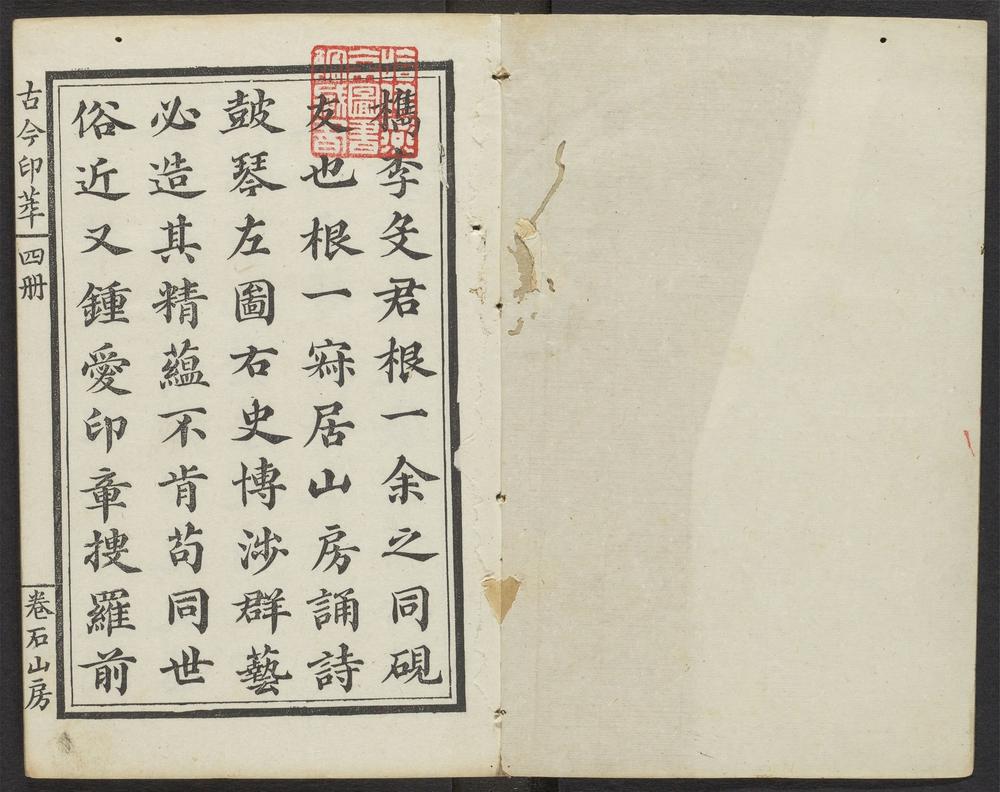 哈佛燕
京圖書
館藏
檇李殳君根一余之同硯
友也根一居山房誦詩
鼓琴左圖右史博涉群藝
必造其精蘊不肯苟同世
俗近又鍾愛印章搜羅前
古今印萃
四册
卷石山房